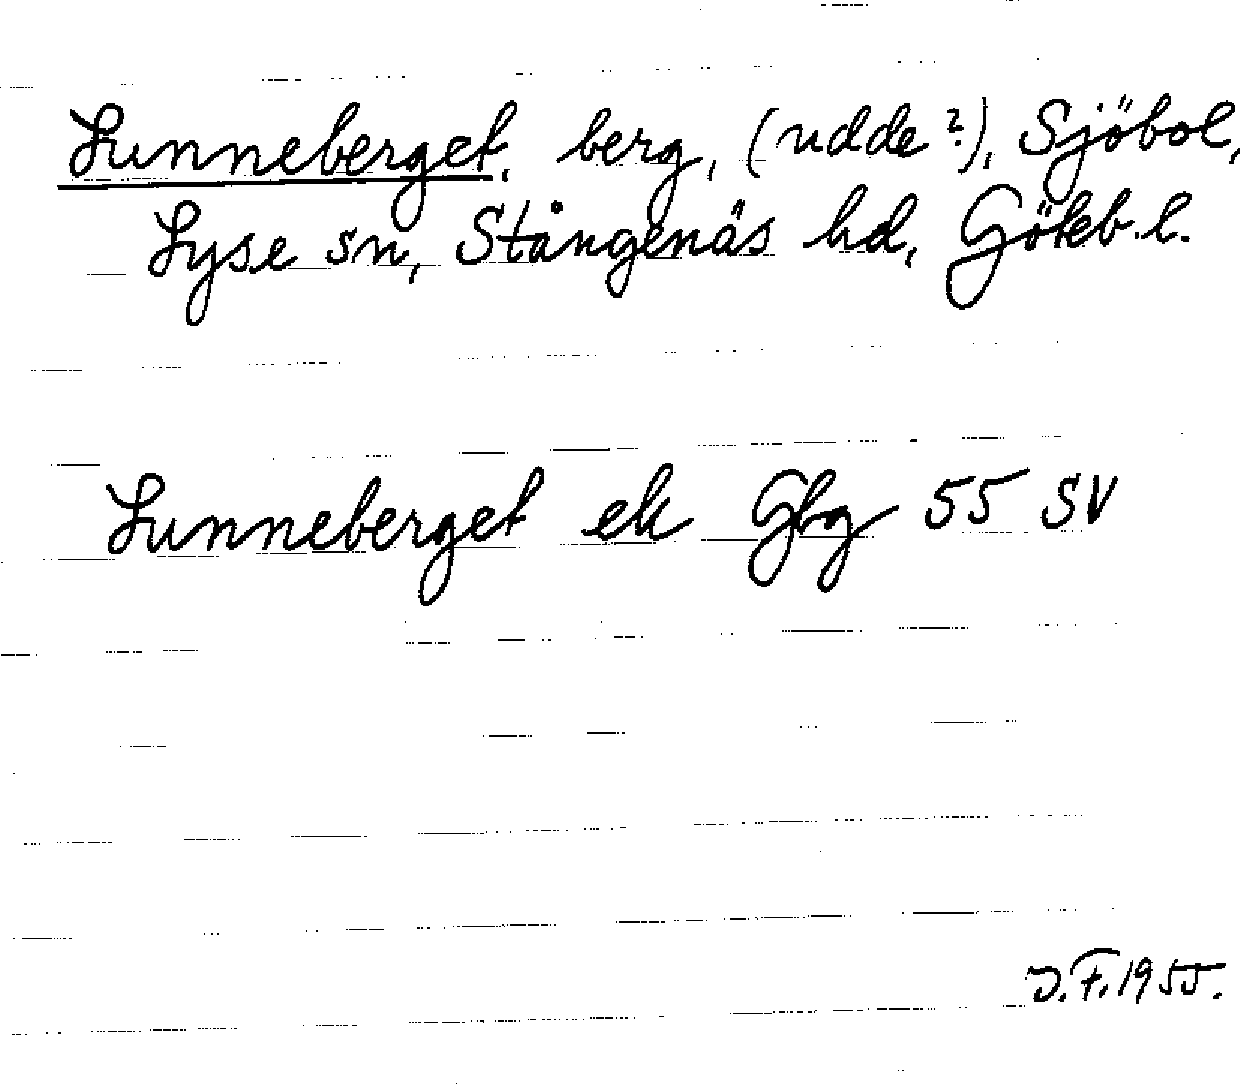 Lunneberget, berg, (udde?), Sjöbol,
Lyse sn, Stångenäs hd, Götеb. l.
Lunneberget ek Gbg 55 SV
J.F. 1955.